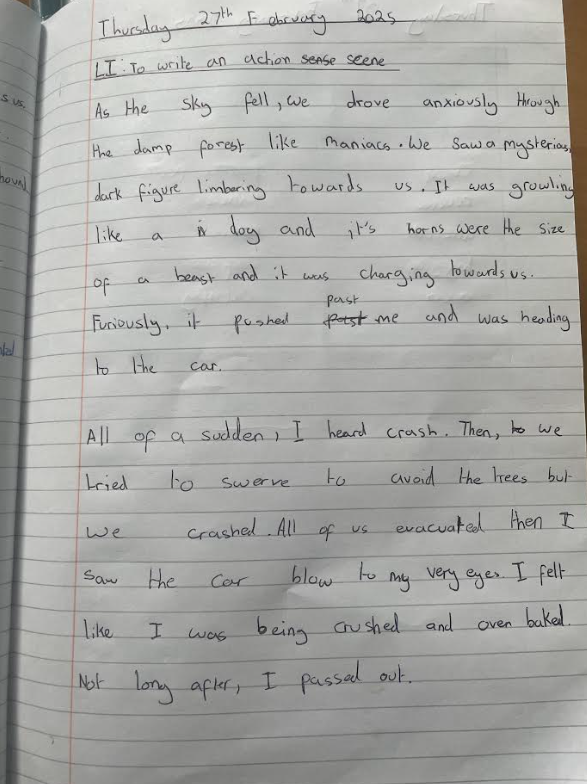 Thursday 27th February 2025
LI: To write an action sense scene
As the sky fell, we drove anxiously through
the damp forest like maniacs. We saw a mysterias,
dark figure limbering towards us. It was growling
like a dog and it's horns were the size
of a beast and it was charging towards us.
past
Furiously, it pushed past me and was heading
to the car.
All of a sudden, I heard crash. Then, to we
tried to swerve to avoid the trees but
we crashed. All of us evacuated then I
saw the car blow to my very eyes. I felt
like I was being crushed and oven baked.
Not long after, I passed out.